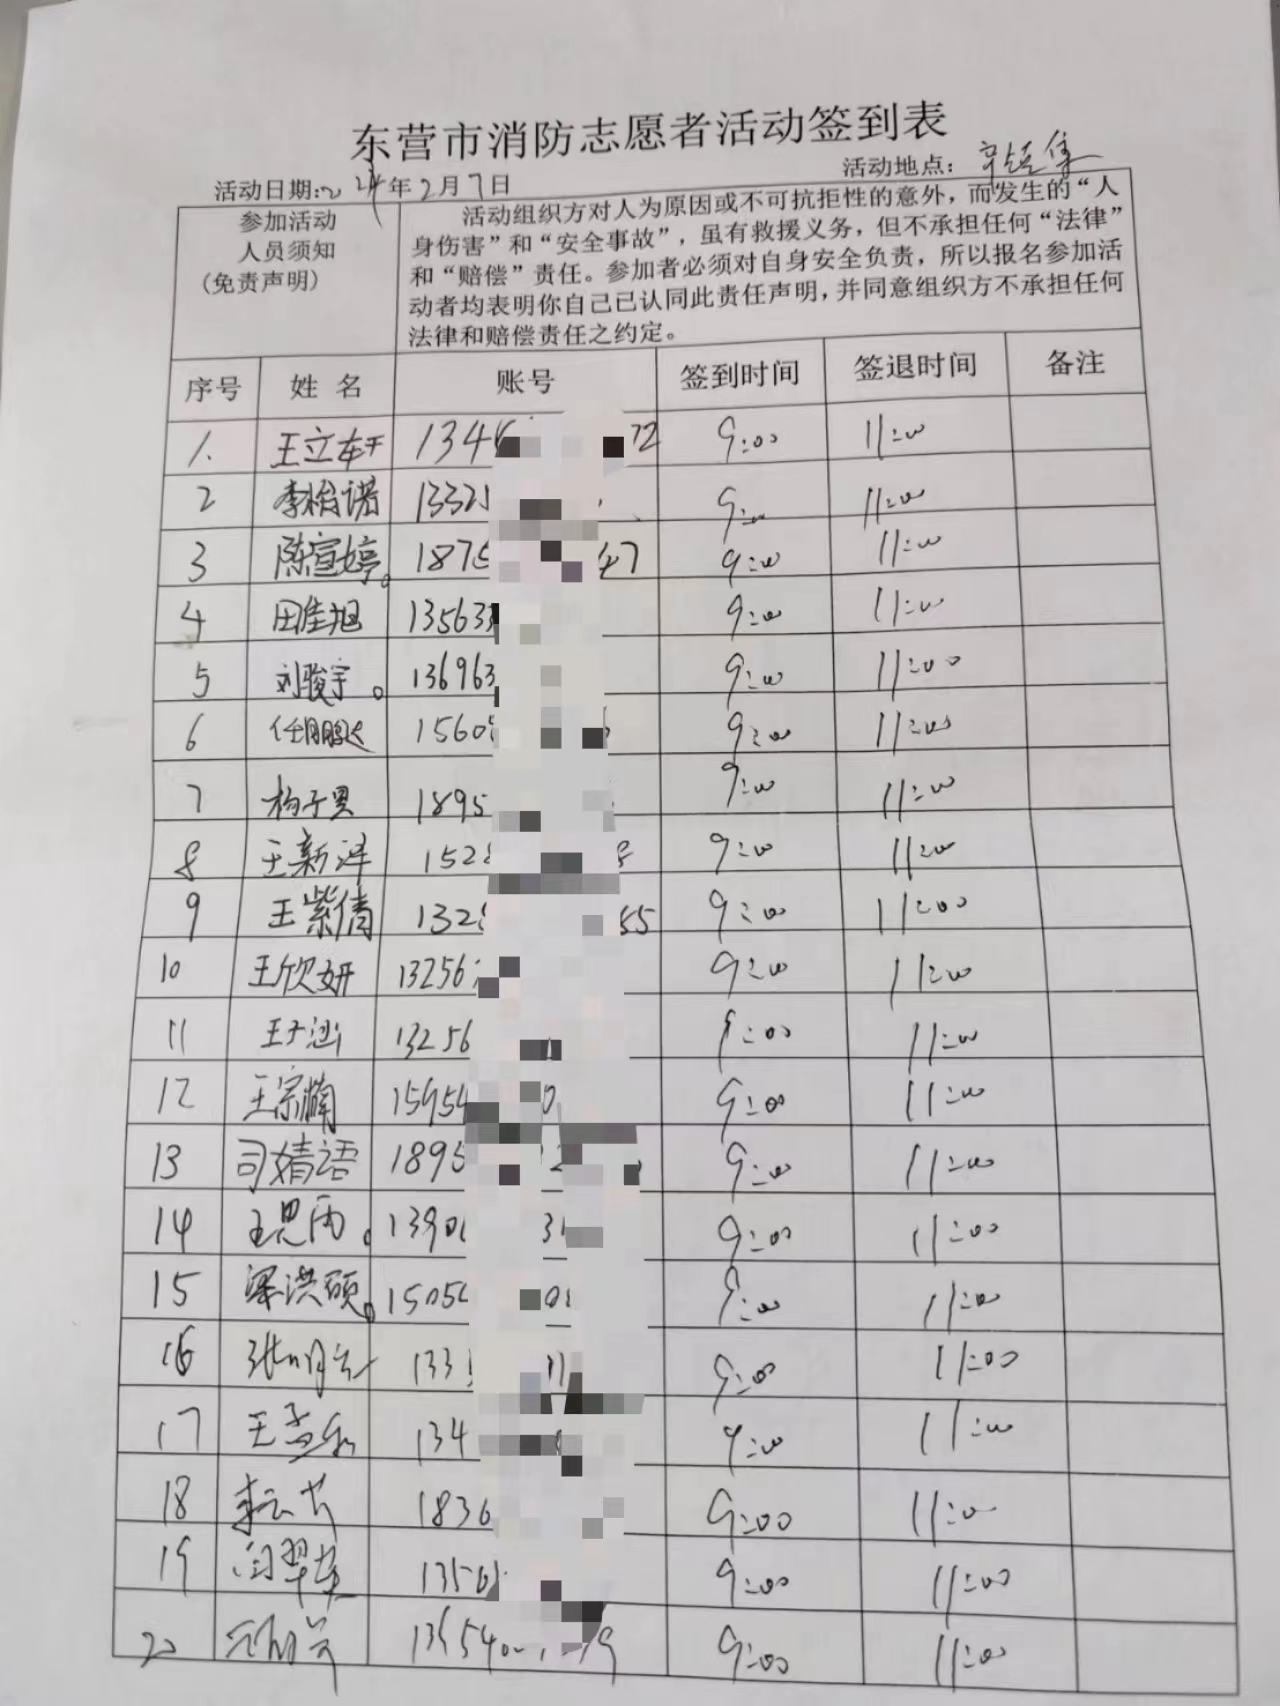 东营市消防志愿者活动签到表
活动日期:2024年2月7日 活动地点:
参加活动
人员须知
(免责声明)
活动组织方对人为原因或不可抗拒性的意外，而发生的“人
身伤害”和“安全事故”，虽有救援义务，但不承担任何“法律”
和“赔偿”责任。参加者必须对自身安全负责，所以报名参加活
动者均表明你自己已认同此责任声明，并同意组织方不承担任何
法律和赔偿责任之约定。
序号 姓名 账号 签到时间 签退时间 备注
1. 王立轩 134 72 9:00 11:00
2 李怡诺 1332 9:00 11:00
3 陈宣婷。 187 47 9:00 11:00
4 田佳旭 13563 9:00 11:00
5 刘骏宇。 136963 9:00 11:00
6 任鹏达 1560 9:00 11:00
7 杨子昊 1895 9:00 11:00
8 王新泽 152 8 9:00 11:00
9 王紫倩 132 55 9:00 11:00
10 王欣妍 13256 9:00 11:00
11 王子涵 13256 9:00 11:00
12 王宗楠 15954 0 9:00 11:00
13 司婧语 1895 9:00 11:00
14 王思雨。 1390 3 9:00 11:00
15 梁洪硕。 1505 0 9:00 11:00
16 133 9:00 11:00
17 王 134 9:00 11:00
18 李 1836 9:00 11:00
19 闫翠 1350 9:00 11:00
20 9:00 11:00